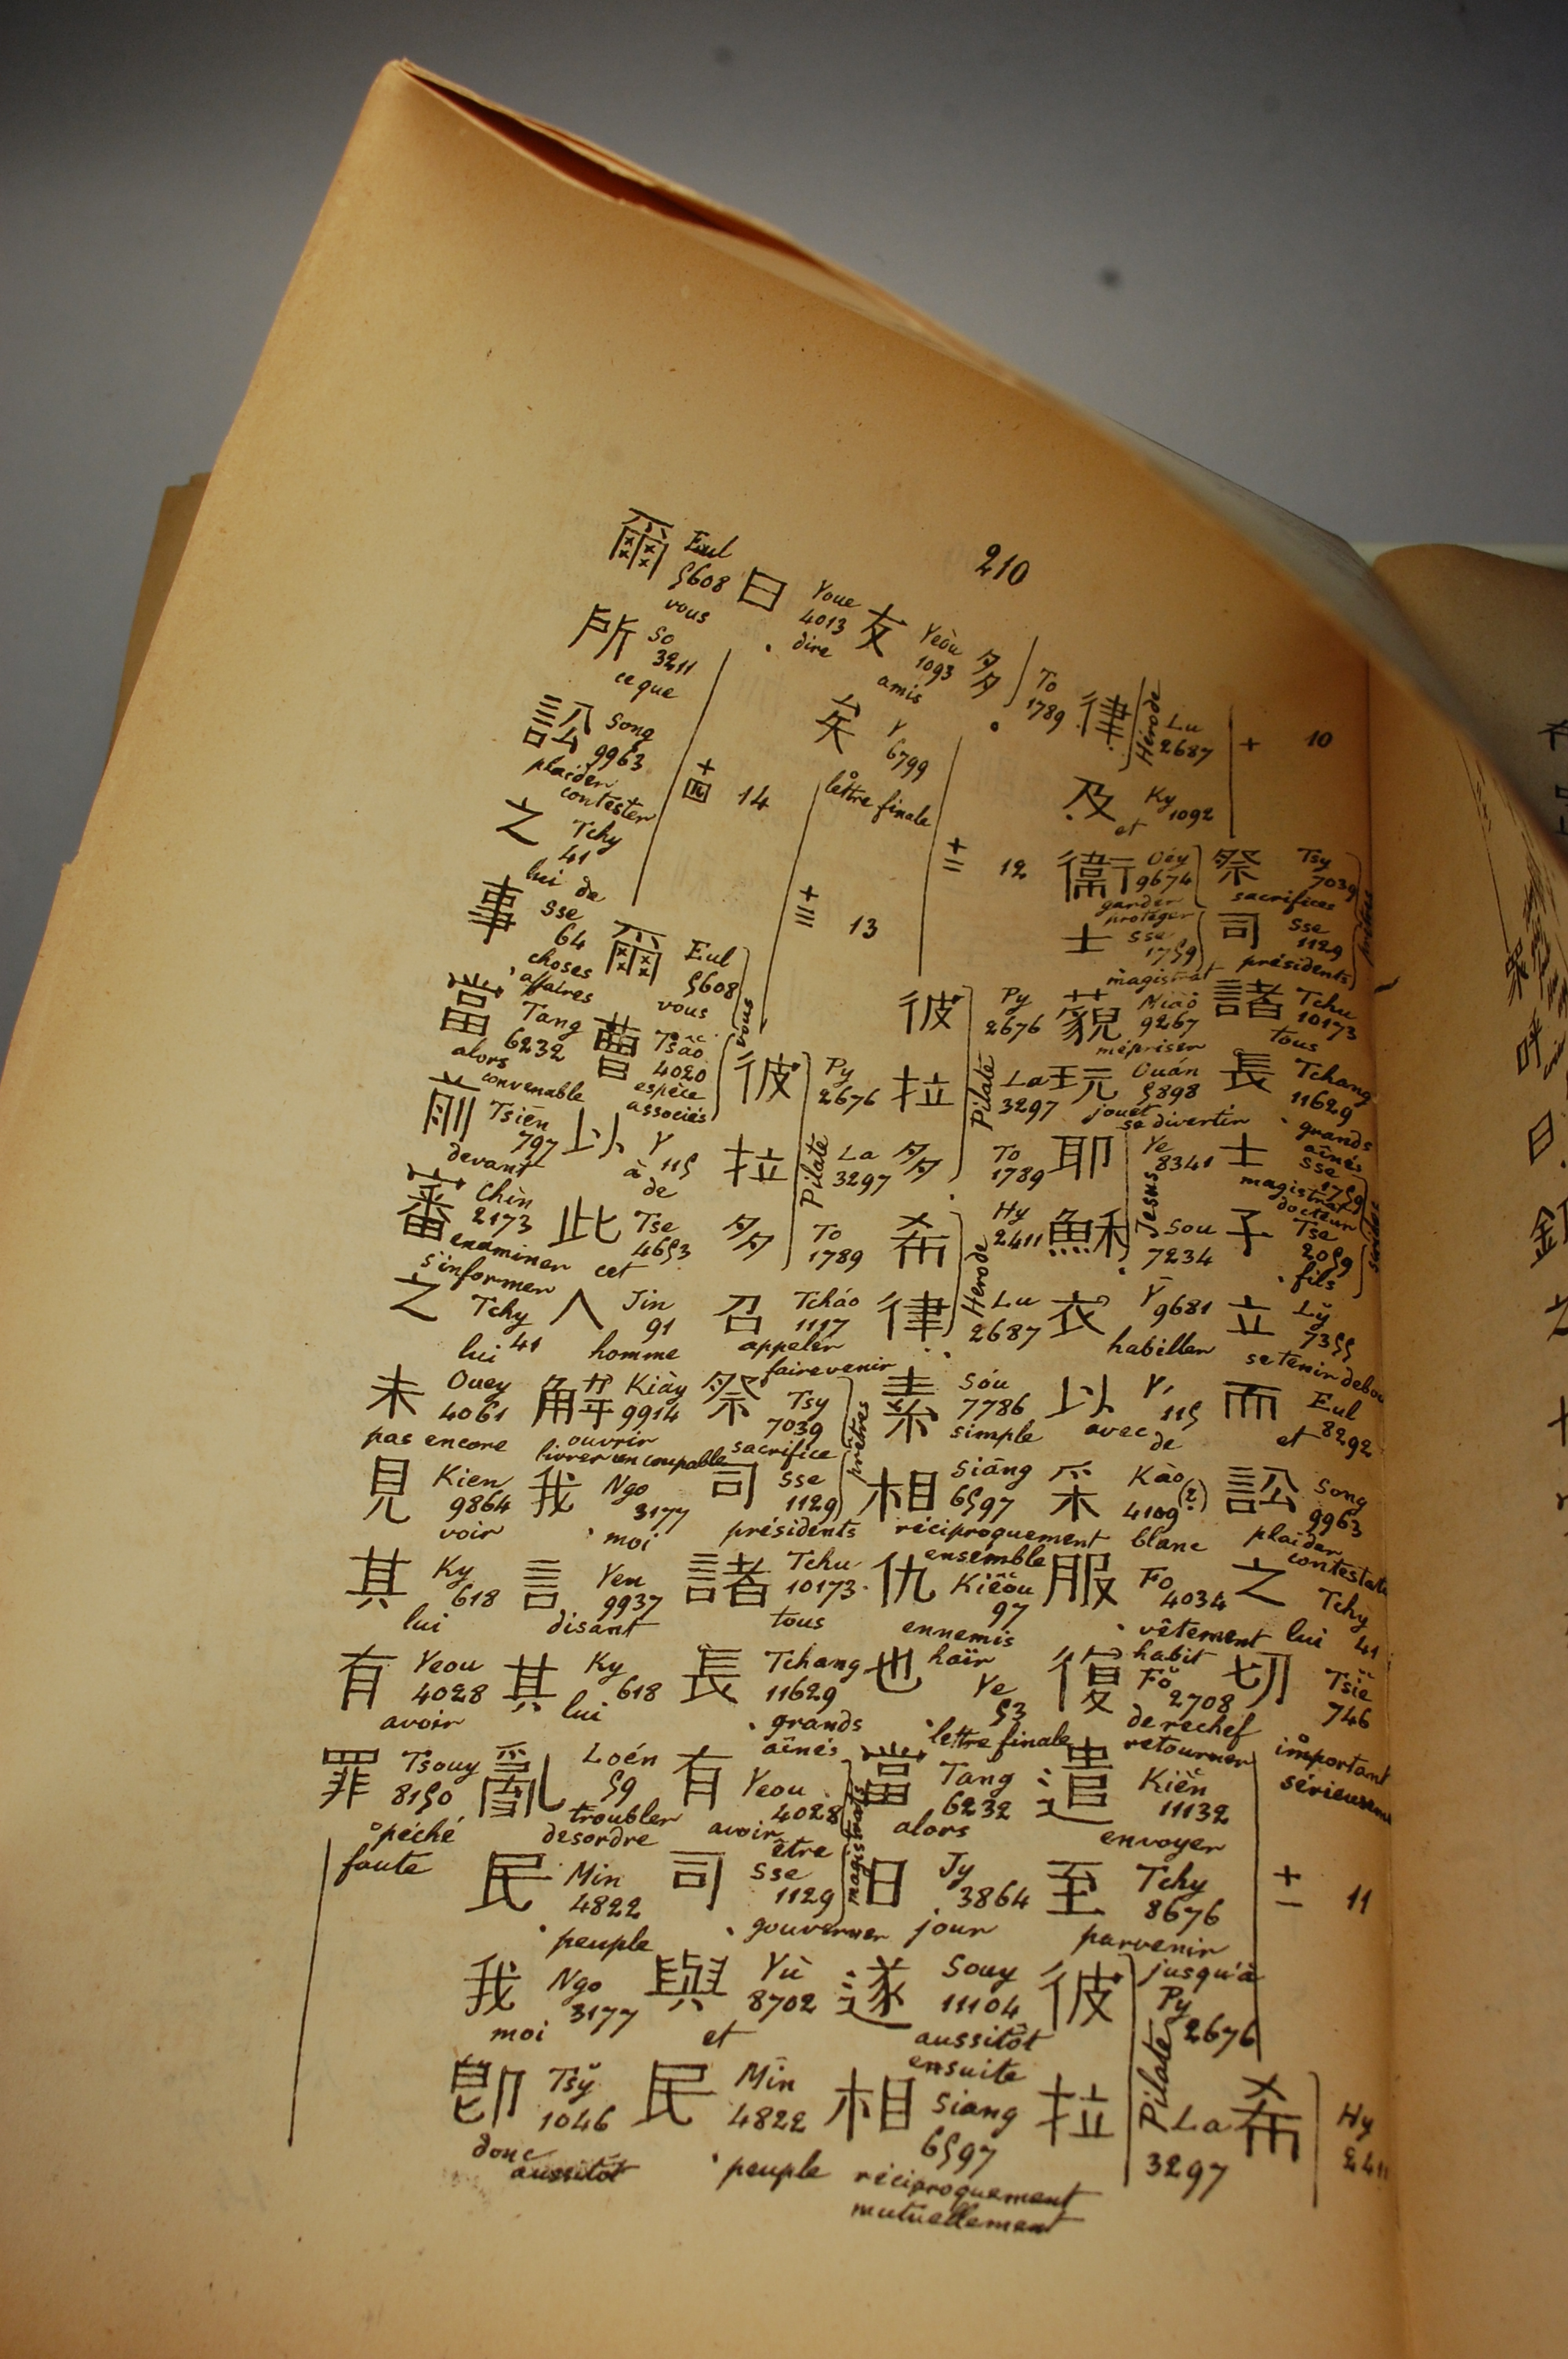 210
十 10
祭 Tsy 7039 sacrifices
司 Sse 1129 présidents
諸 Tchu 10173 tous
長 Tchang 11629 grands aînés
士 Sse 1759 magistrat docteur
子 Tse 2059 fils
立 Lỹ 7355 se tenir
而 Eul 8292 et
訟 Song 9963 plaider
之 Tchy 41 lui
切 Tsiĕ 746 important
十一 11
希 Hy
律 Lu 2687 Hérode
及 Ky 1092 et
衛 Oéy 9674 garder protéger
士 Sse 1759 magistrat
藐 Miào 9267 mépriser
玩 Ouán 5898 jouet se divertir
耶 Ye 8341 Jesus
穌 Sou 7234
衣 Y 9681 habiller
以 Y 115 avec de
Kào 4109 (?) blanc
服 Fo 4034 vêtement habit
復 Fŏ 2708 derechef retourner
遣 Kièn 11132 envoyer
至 Tchy 8676 parvenir jusqu'à
彼 Py 2676 Pilate
拉 La 3297
多 To 1789
十二 12
彼 Py 2676 Pilate
拉 La 3297
多 To 1789
希 Hy 2411 Herode
律 Lu 2687
素 Sóu 7786 simple
相 Siāng 6597 réciproquement ensemble
仇 Kiĕóu 97 ennemis haïr
也 Ye 53 lettre finale
當 Tang 6232 alors
日 Jy 3864 jour
遂 Souy 11104 aussitôt ensuite
相 Siang 6597 réciproquement mutuellement
友 Yeòu 1093 amis
矣 Y 6799 lettre finale
十三 13
彼 Py 2676 Pilate
拉 La 3297
多 To 1789
召 Tcháo 1117 appeler faire venir
祭 Tsy 7039 sacrifice prêtres
司 Sse 1129 présidents
諸 Tchu 10173 tous
長 Tchang 11629 grands aînés
有 Yeou 4028 avoir être magistrats
司 Sse 1129 gouverner
與 Yù 8702 et
民 Mîn 4822 peuple
曰 Youe 4013 dire
十四 14
爾 Eul 5608 vous
曹 Tsâo 4020 espèce associés
以 Y 115 à de
此 Tse 4653 cet
人 Jin 91 homme
解 Kiày 9914 ouvrir livrer un coupable
我 Ngo 3177 moi
言 Yen 9937 disant
其 Ky 618 lui
亂 Loén 59 troubler desordre
民 Min 4822 peuple
我 Ngo 3177 moi
卽 Tsỹ 1046 donc aussitôt
爾 Eul 5608 vous
所 So 3211 ce que
訟 Song 9963 plaider contester
之 Tchy 41 lui de
事 Sse 64 choses affaires
當 Tang 6232 alors convenable
前 Tsien 797 devant
審 Chìn 2173 examiner s'informer
之 Tchy 41 lui
未 Ouey 4061 pas encore
見 Kien 9864 voir
其 Ky 618 lui
有 Yeou 4028 avoir
罪 Tsouy 8150 péché faute